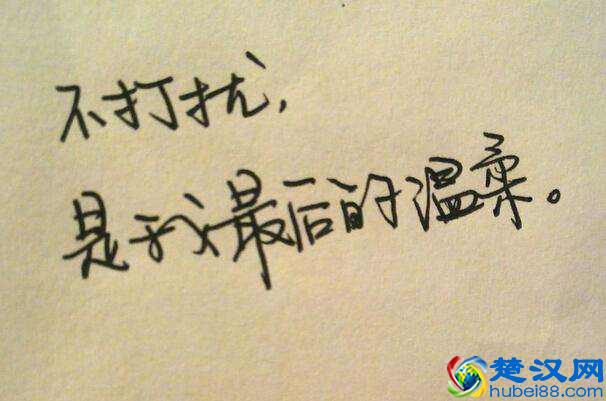 不打扰，
是我最后的温柔。
楚汉网
hubei88.com